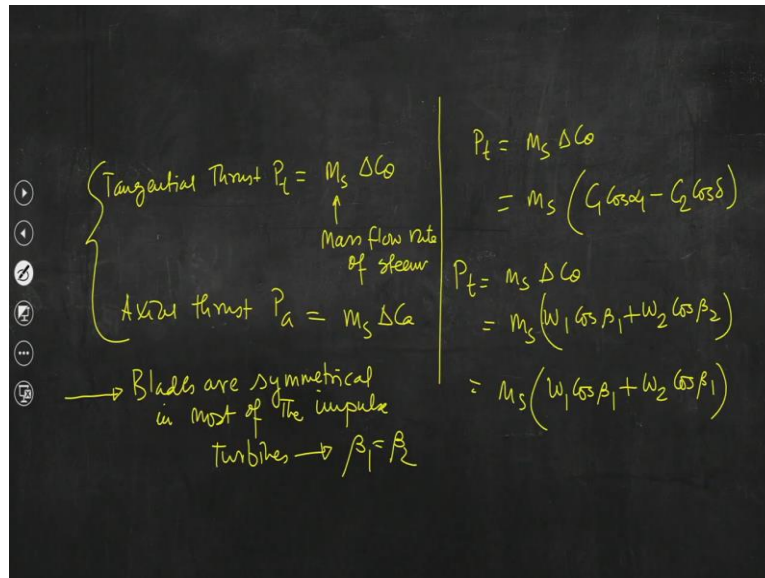 Tangential Thrust Pt = ms ΔCθ
↑
Mass flow rate
of steam
Axial thrust Pa = ms ΔCa
→ Blades are symmetrical
in most of the impulse
turbines → β1 = β2
Pt = ms ΔCθ
= ms (C1 cosα1 - C2 cosδ)
Pt = ms ΔCθ
= ms (W1 cos β1 + W2 cos β2)
= ms (W1 cos β1 + W2 cos β1)